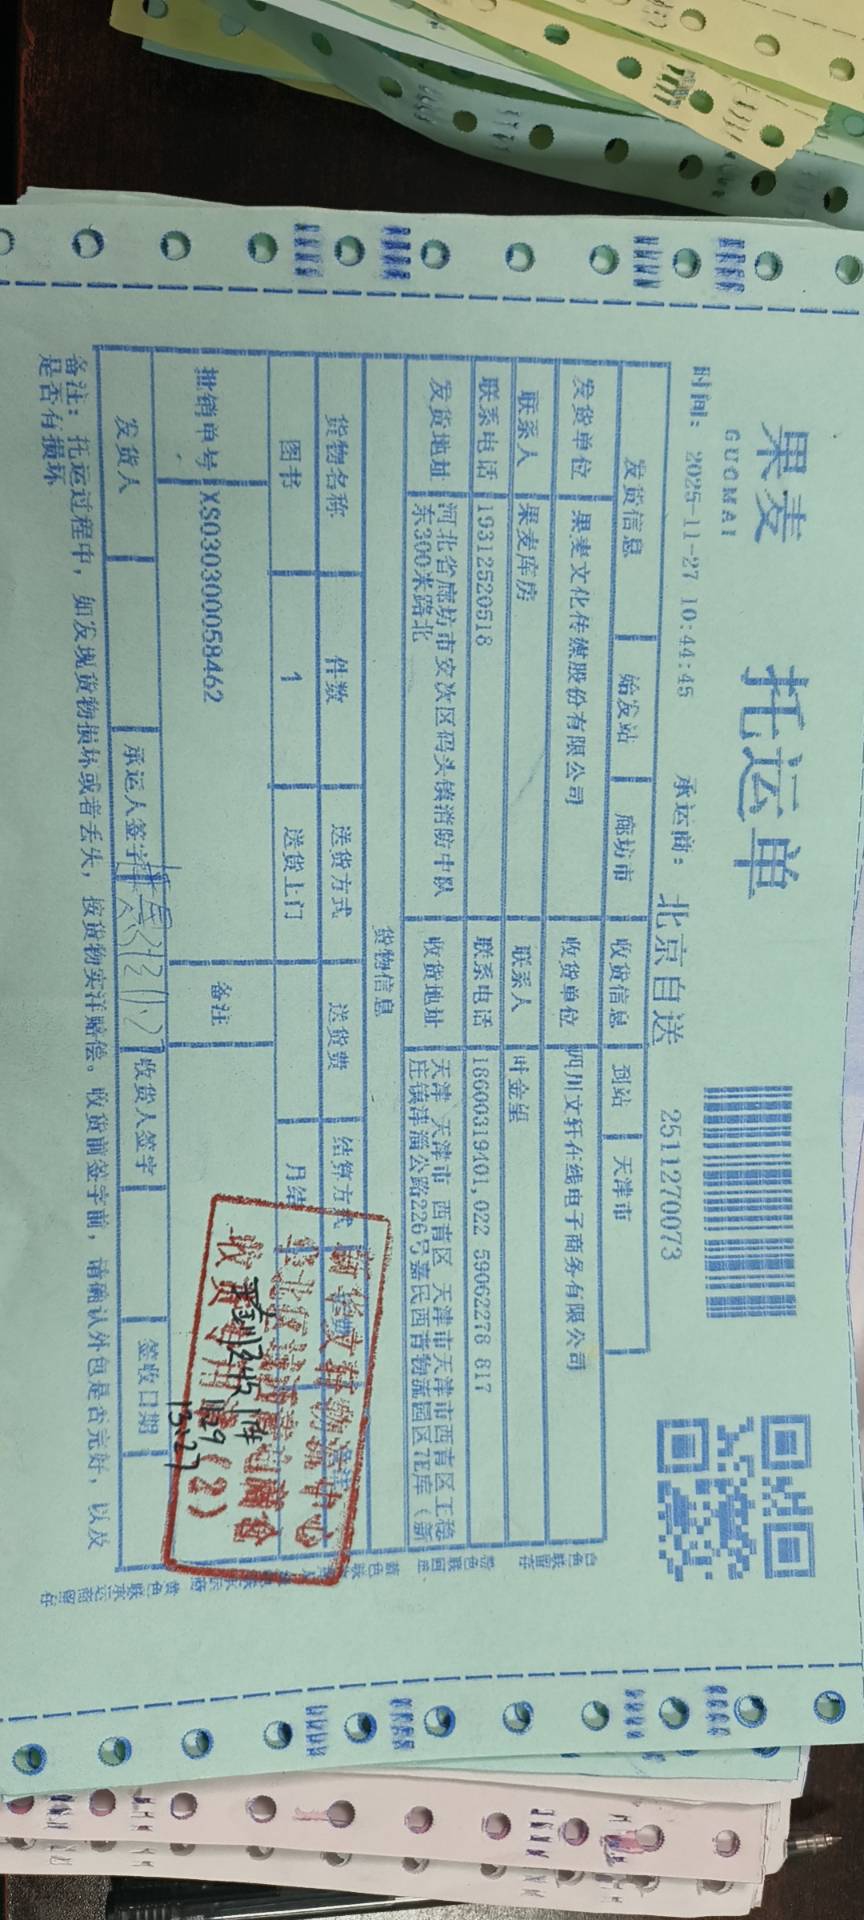 果麦
GUOMAI
托运单
时间: 2025-11-27 10:44:45
承运商: 北京自送
2511270073
发货信息 始发站 廊坊市 收货信息 到站 天津市
发货单位 果麦文化传媒股份有限公司 收货单位 四川文轩在线电子商务有限公司
联系人 果麦库房 联系人 叶金望
联系电话 19312520518 联系电话 18600319401,022 59062278 817
发货地址 河北省廊坊市安次区码头镇消防中队
东300米路北
收货地址 天津 天津市 西青区 天津市天津市西青区王稳
庄镇津淄公路226号嘉民西青物流园区7E库（新
货物信息
货物名称 件数 送货方式 送货费 结算方式
图书 1 送货上门 月结
批销单号 XS0303000058462 备注
发货人 承运人签字 收货人签字 签收日期
备注: 托运过程中, 如发现货物损坏或者丢失, 按货物实洋赔偿。收货前签字前, 请确认外包是否完好, 以及
是否有损坏
新华文轩物流中心
收货专用章
(2)
11.29
13:27